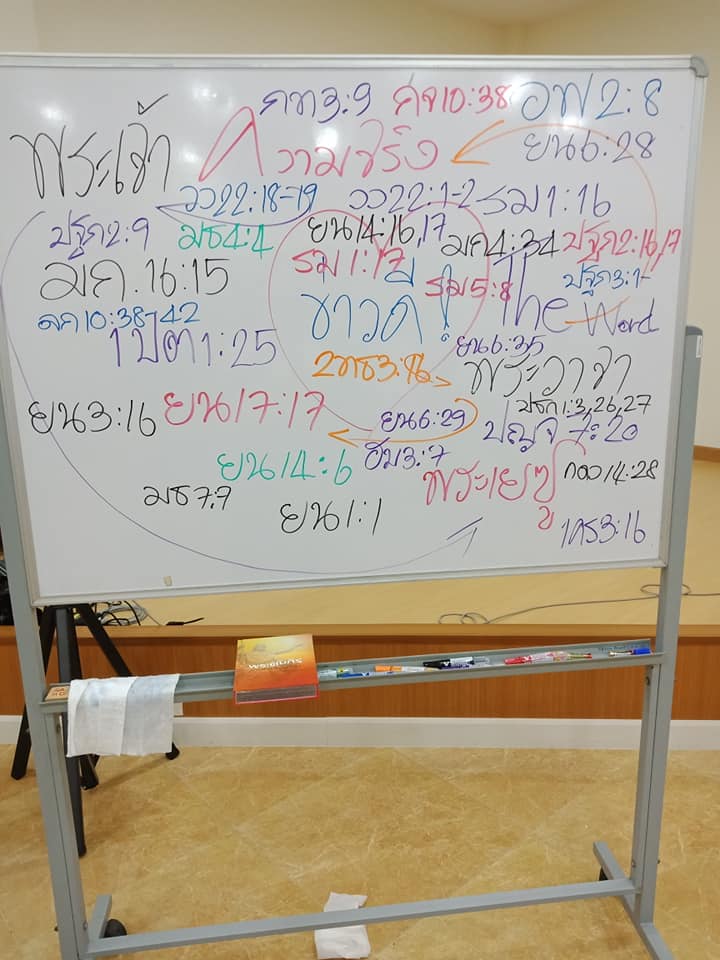 คท3:9 กจ10:38 อพ2:8
พระเจ้า ความจริง ยน6:28
วว22:18-19 วว22:1-2 รม1:16
ปฐก2:9 มธ4:4 ยน14:16,17 มก4:34 ปฐก2:16,17
มก.16:15 รม1:17 รม5:8 The Word ปฐก3:1-
ลก10:38-42 ข่าวดี!
1ปต1:25 2ทธ3:16 ยน6:35 พระวาจา
ยน3:16 ยน17:17 ยน6:29 ปชก1:3,26,27
ปญจ 7:20
ยน14:6 ฮบ3:7 พระเยซู กดว14:28
มธ7:7 ยน1:1 1คร3:16